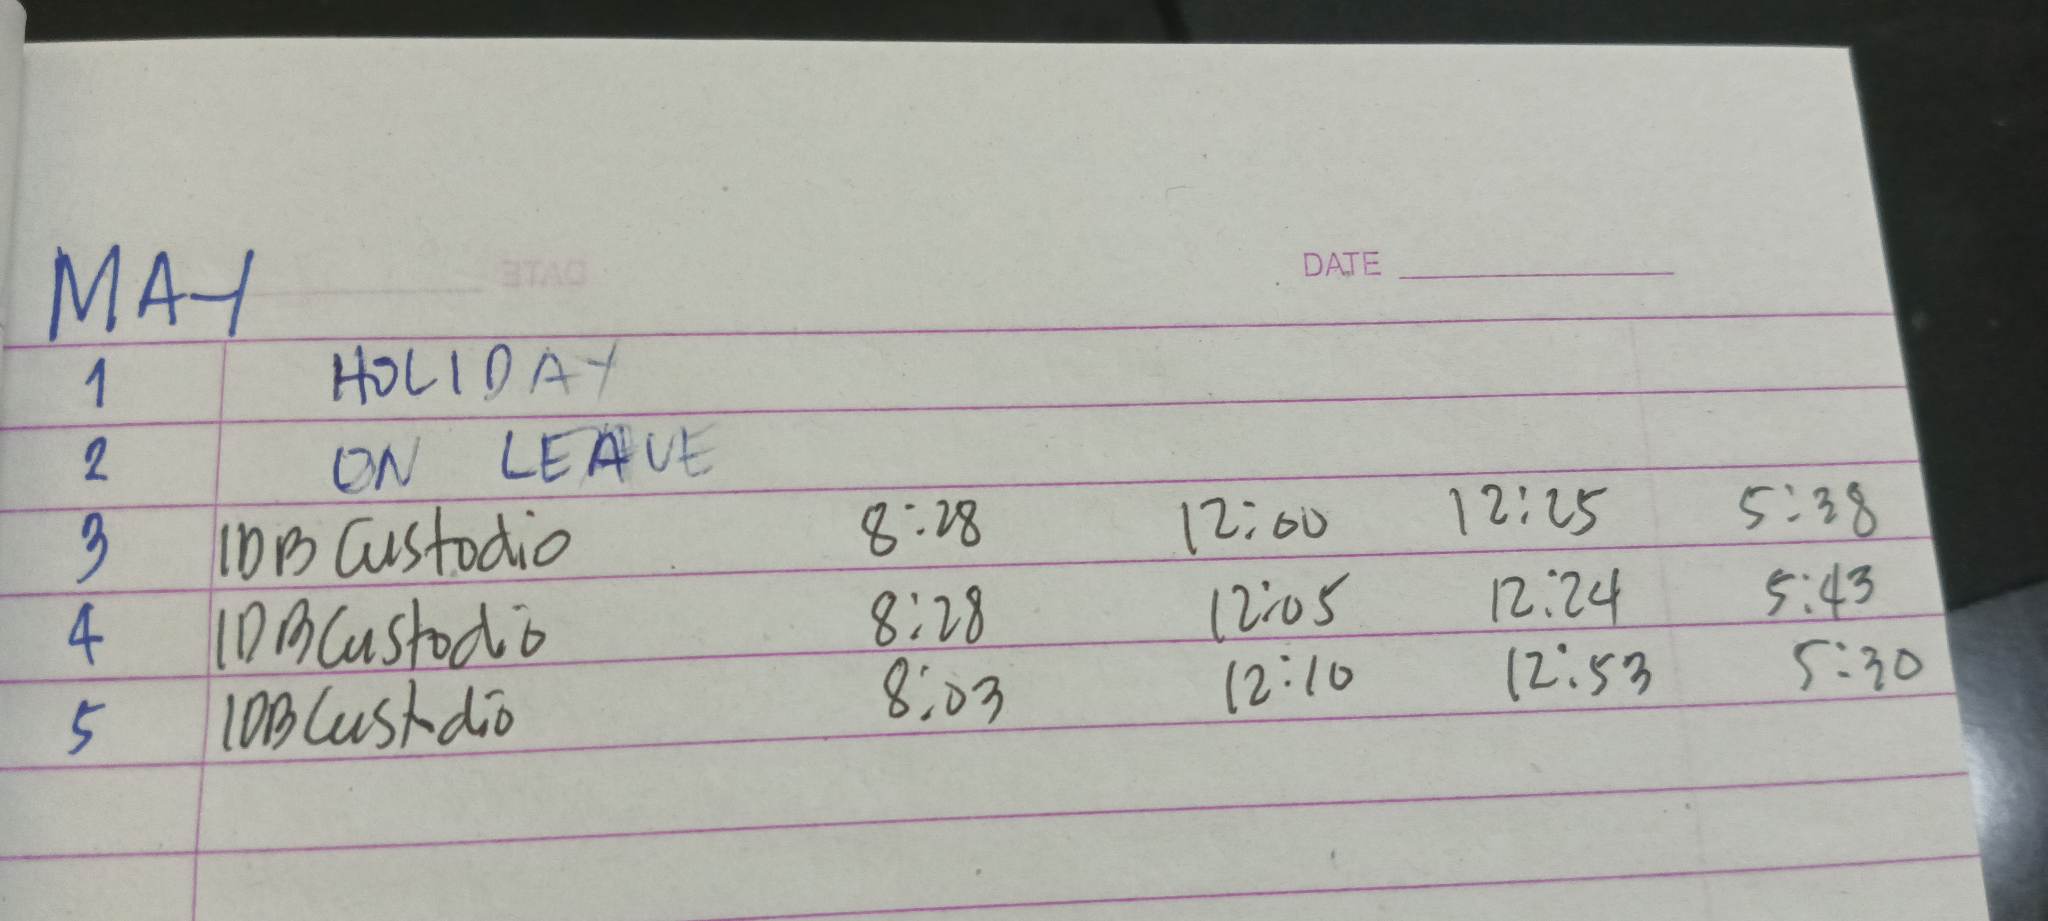 DATE
MAY
1 HOLIDAY
2 ON LEAVE
3 IDB Custodio 8:28 12:00 12:25 5:38
4 IDB Custodio 8:28 12:05 12:24 5:43
5 IDB Custodio 8:03 12:10 12:53 5:30